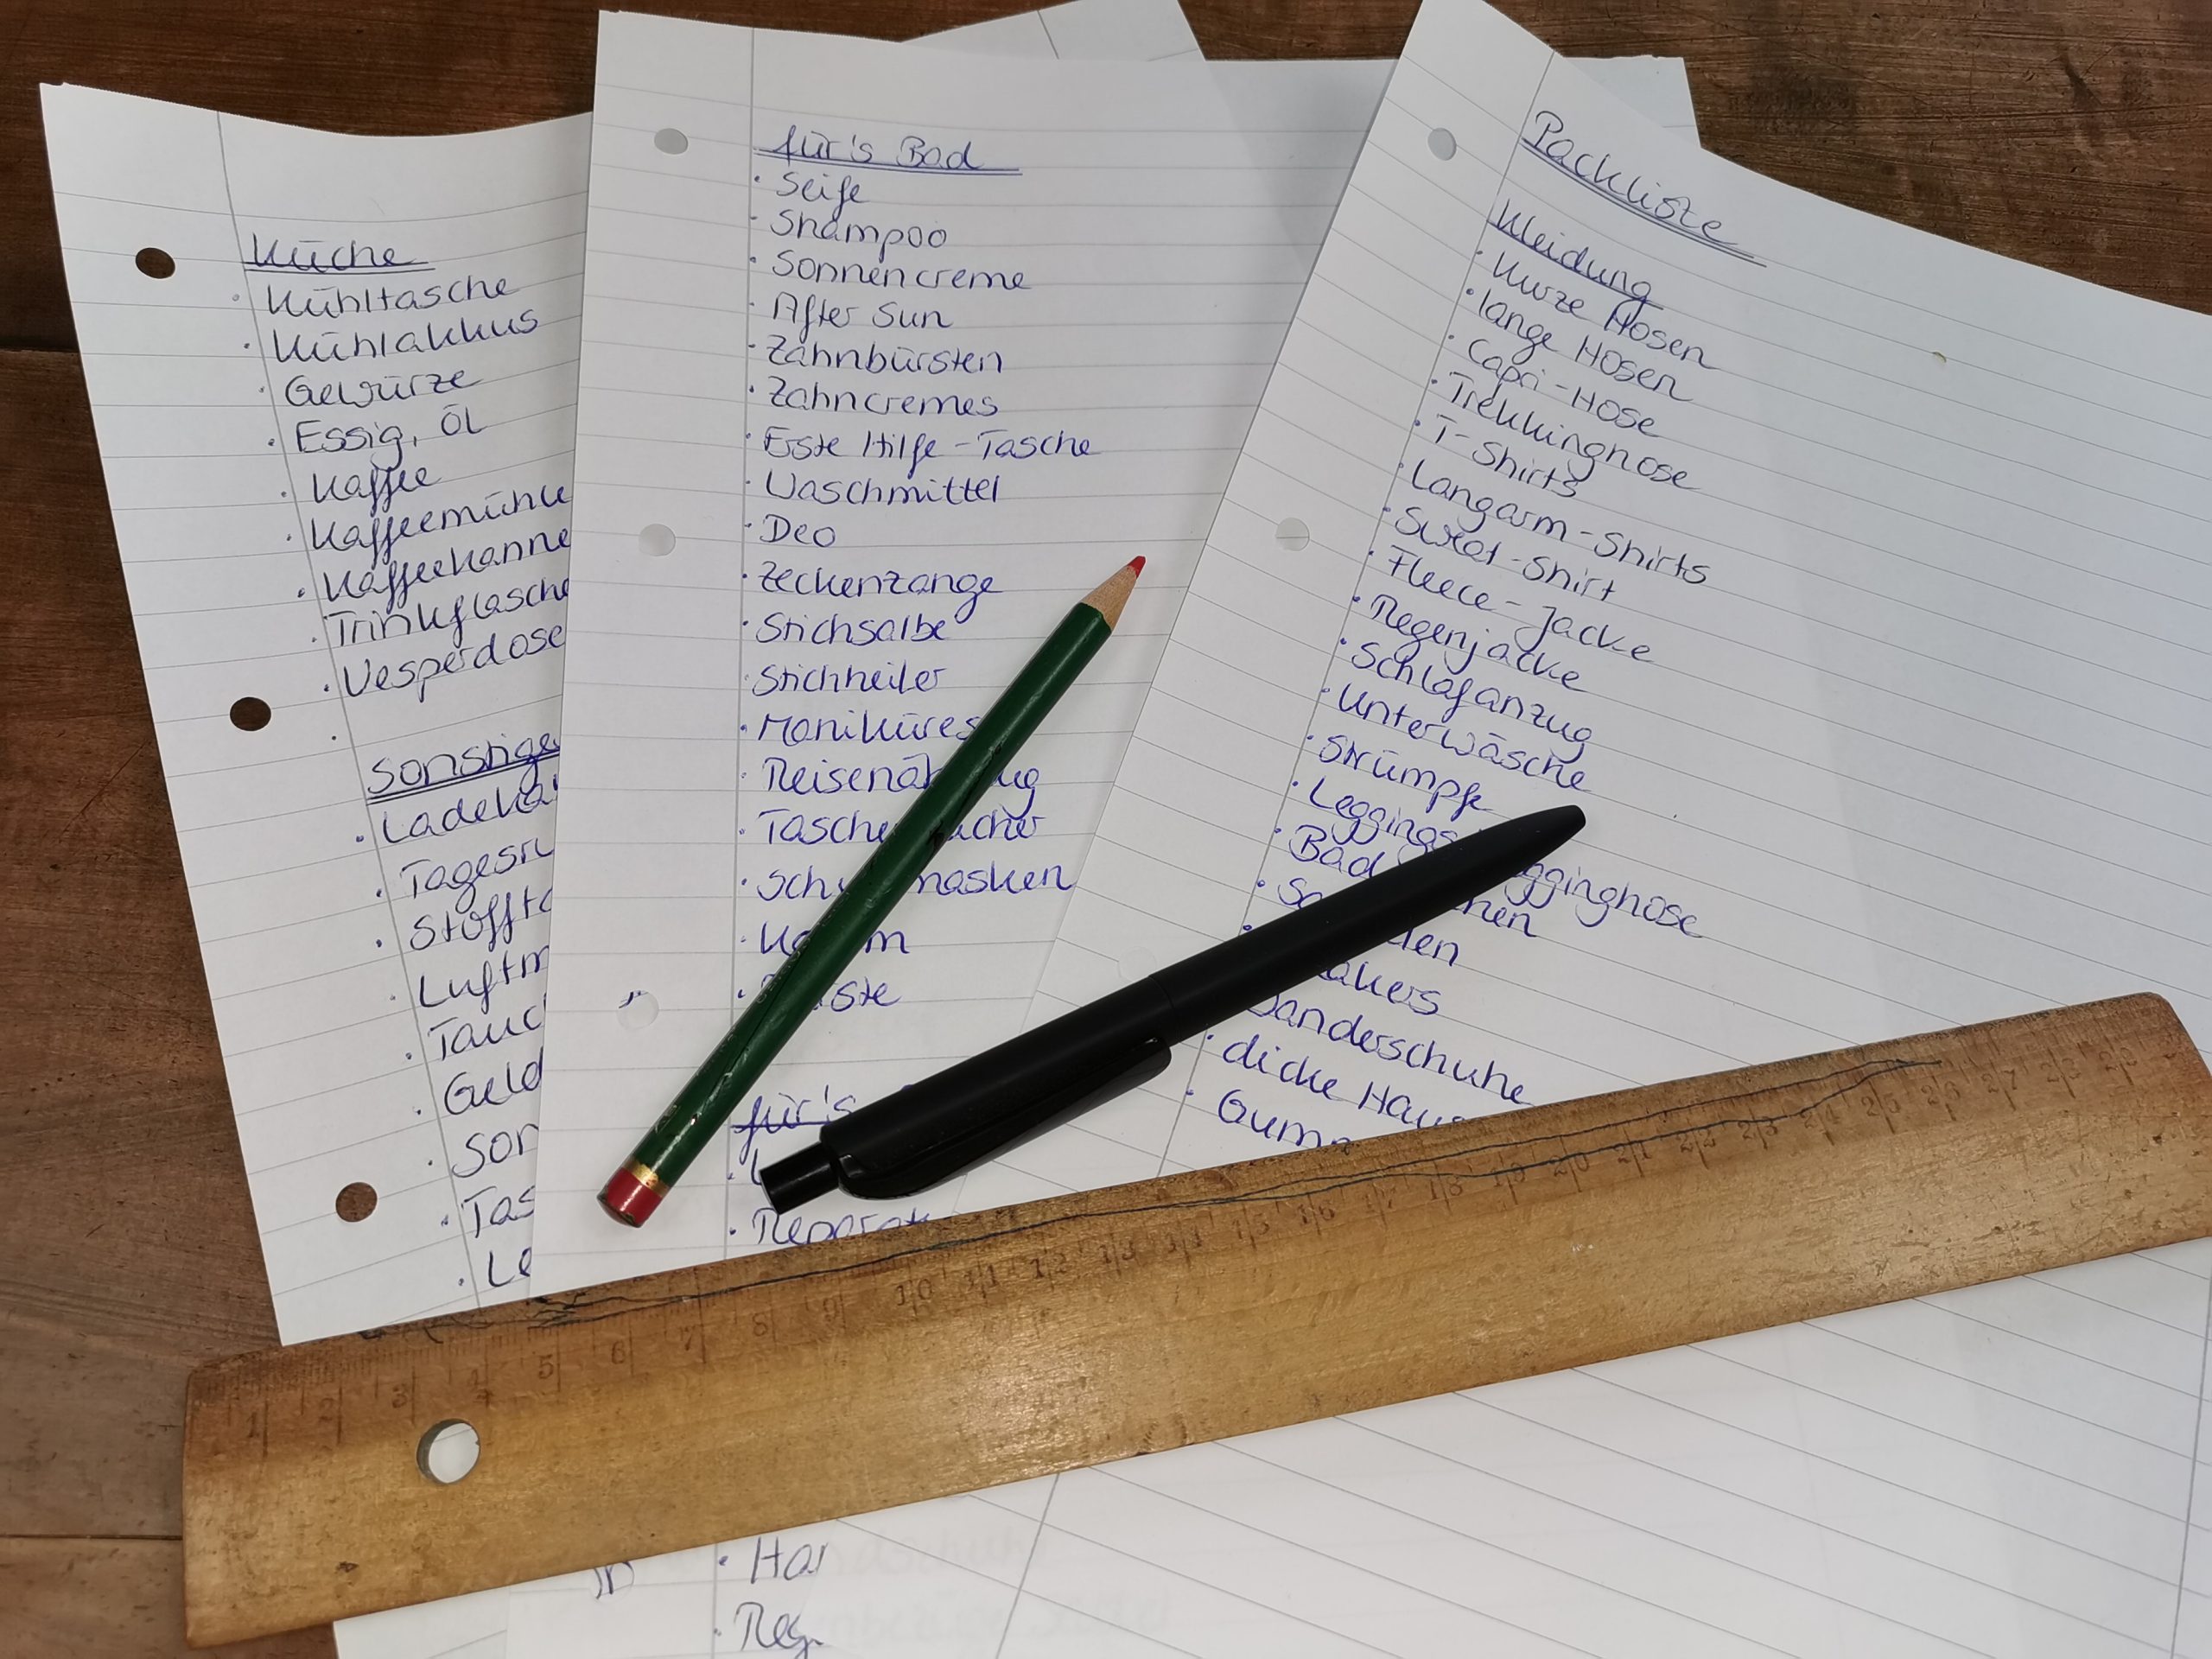 Küche
· Kühltasche
· Kühlakkus
· Gewürze
· Essig, Öl
· Kaffee
· Kaffeemühle
· Kaffeekanne
· Trinkflasche
· Vesperdose
·
Sonstige
· Ladeka
· Tagesru
· Stoffta
· Luftm
· Tauc
· Geld
· Son
· Tas
· Le
für's Bad
· Seife
· Shampoo
· Sonnencreme
· After Sun
· Zahnbürsten
· Zahncremes
· Erste Hilfe-Tasche
· Waschmittel
· Deo
· Zeckenzange
· Stichsalbe
· Stichheiler
· Maniküres
· Reisenäh ug
· Tasche ücher
· Sch masken
· Ka m
· ste
für's
· Reparat
Packliste
Kleidung
· kurze Hosen
· lange Hosen
· Capri-Hose
· Trekkinghose
· T-Shirts
· Langarm-Shirts
· Sweat-Shirt
· Fleece-Jacke
· Regenjacke
· Schlafanzug
· Unterwäsche
· Strümpfe
· Leggings gginghose
· Bad hen
· Sa len
· akers
· anderschuhe
· dicke Haus
· Gumm
1 2 3 4 5 6 7 8 9 10 11 12 13 14 15 16 17 18 19 20 21 22 23 24 25 26 27 28 29
· Har
· Reg